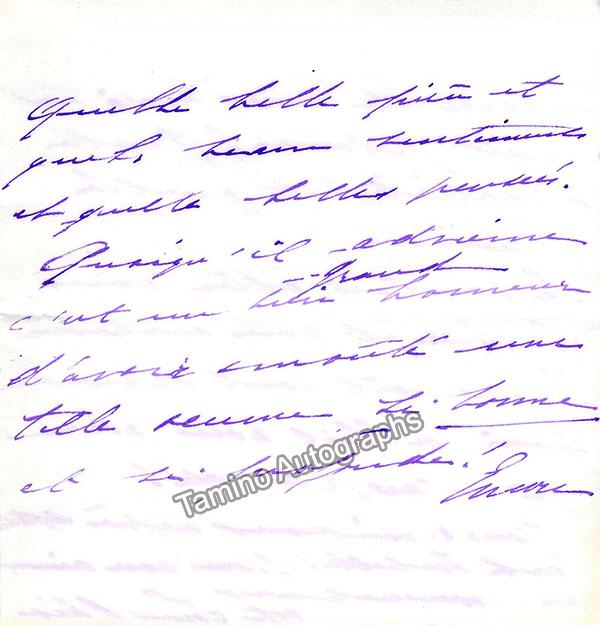 Quelle belle pièce et
quels beaux sentiments
et quelle belles pensées.
Quoiqu'il advienne
grand
c'est un bonheur
d'avoir une
telle si bonne
et si
Encore
Tamino Autographs